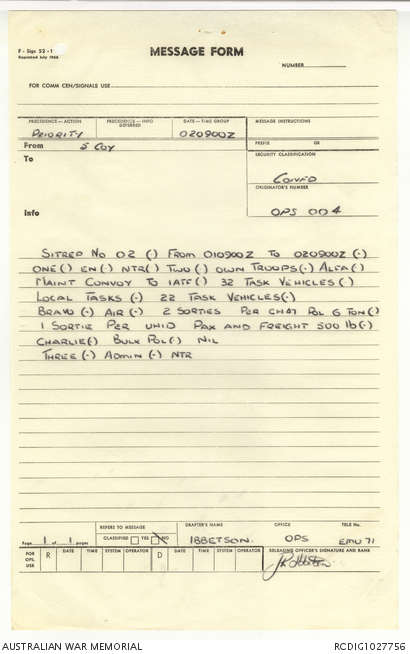 F - Sigs 53 - 1
Reprinted July 1966
MESSAGE FORM
NUMBER
FOR COMM CEN/SIGNALS USE
PRECEDENCE—ACTION
PRECEDENCE—INFO DEFERRED
DATE—TIME GROUP
MESSAGE INSTRUCTIONS
PRIORITY
020900Z
From 5 COY
PREFIX GR
To
SECURITY CLASSIFICATION
CONFD
ORIGINATOR'S NUMBER
Info
OPS 004
SITREP NO 02 () FROM 010900Z TO 020900Z (.)
ONE () EN (.) NTR () TWO () OWN TROOPS (.) ALFA ()
MAINT CONVOY TO 1ATF () 32 TASK VEHICLES ()
LOCAL TASKS (.) 22 TASK VEHICLES (.)
BRAVO (.) AIR (.) 2 SORTIES PER CH47 POL 6 TON ()
1 SORTIE PER UH1D PAX AND FREIGHT 500 lb (.)
CHARLIE (.) BULK POL () NIL
THREE (.) ADMIN (.) NTR
Page 1 of 1 pages
REFERS TO MESSAGE
CLASSIFIED YES NO
DRAFTER'S NAME
IBBETSON.
OFFICE
OPS
TELE No.
EMU 71
FOR OPS. USE
R
DATE
TIME
SYSTEM
OPERATOR
D
DATE
TIME
SYSTEM
OPERATOR
RELEASING OFFICER'S SIGNATURE AND RANK
AUSTRALIAN WAR MEMORIAL
RCDIG1027756